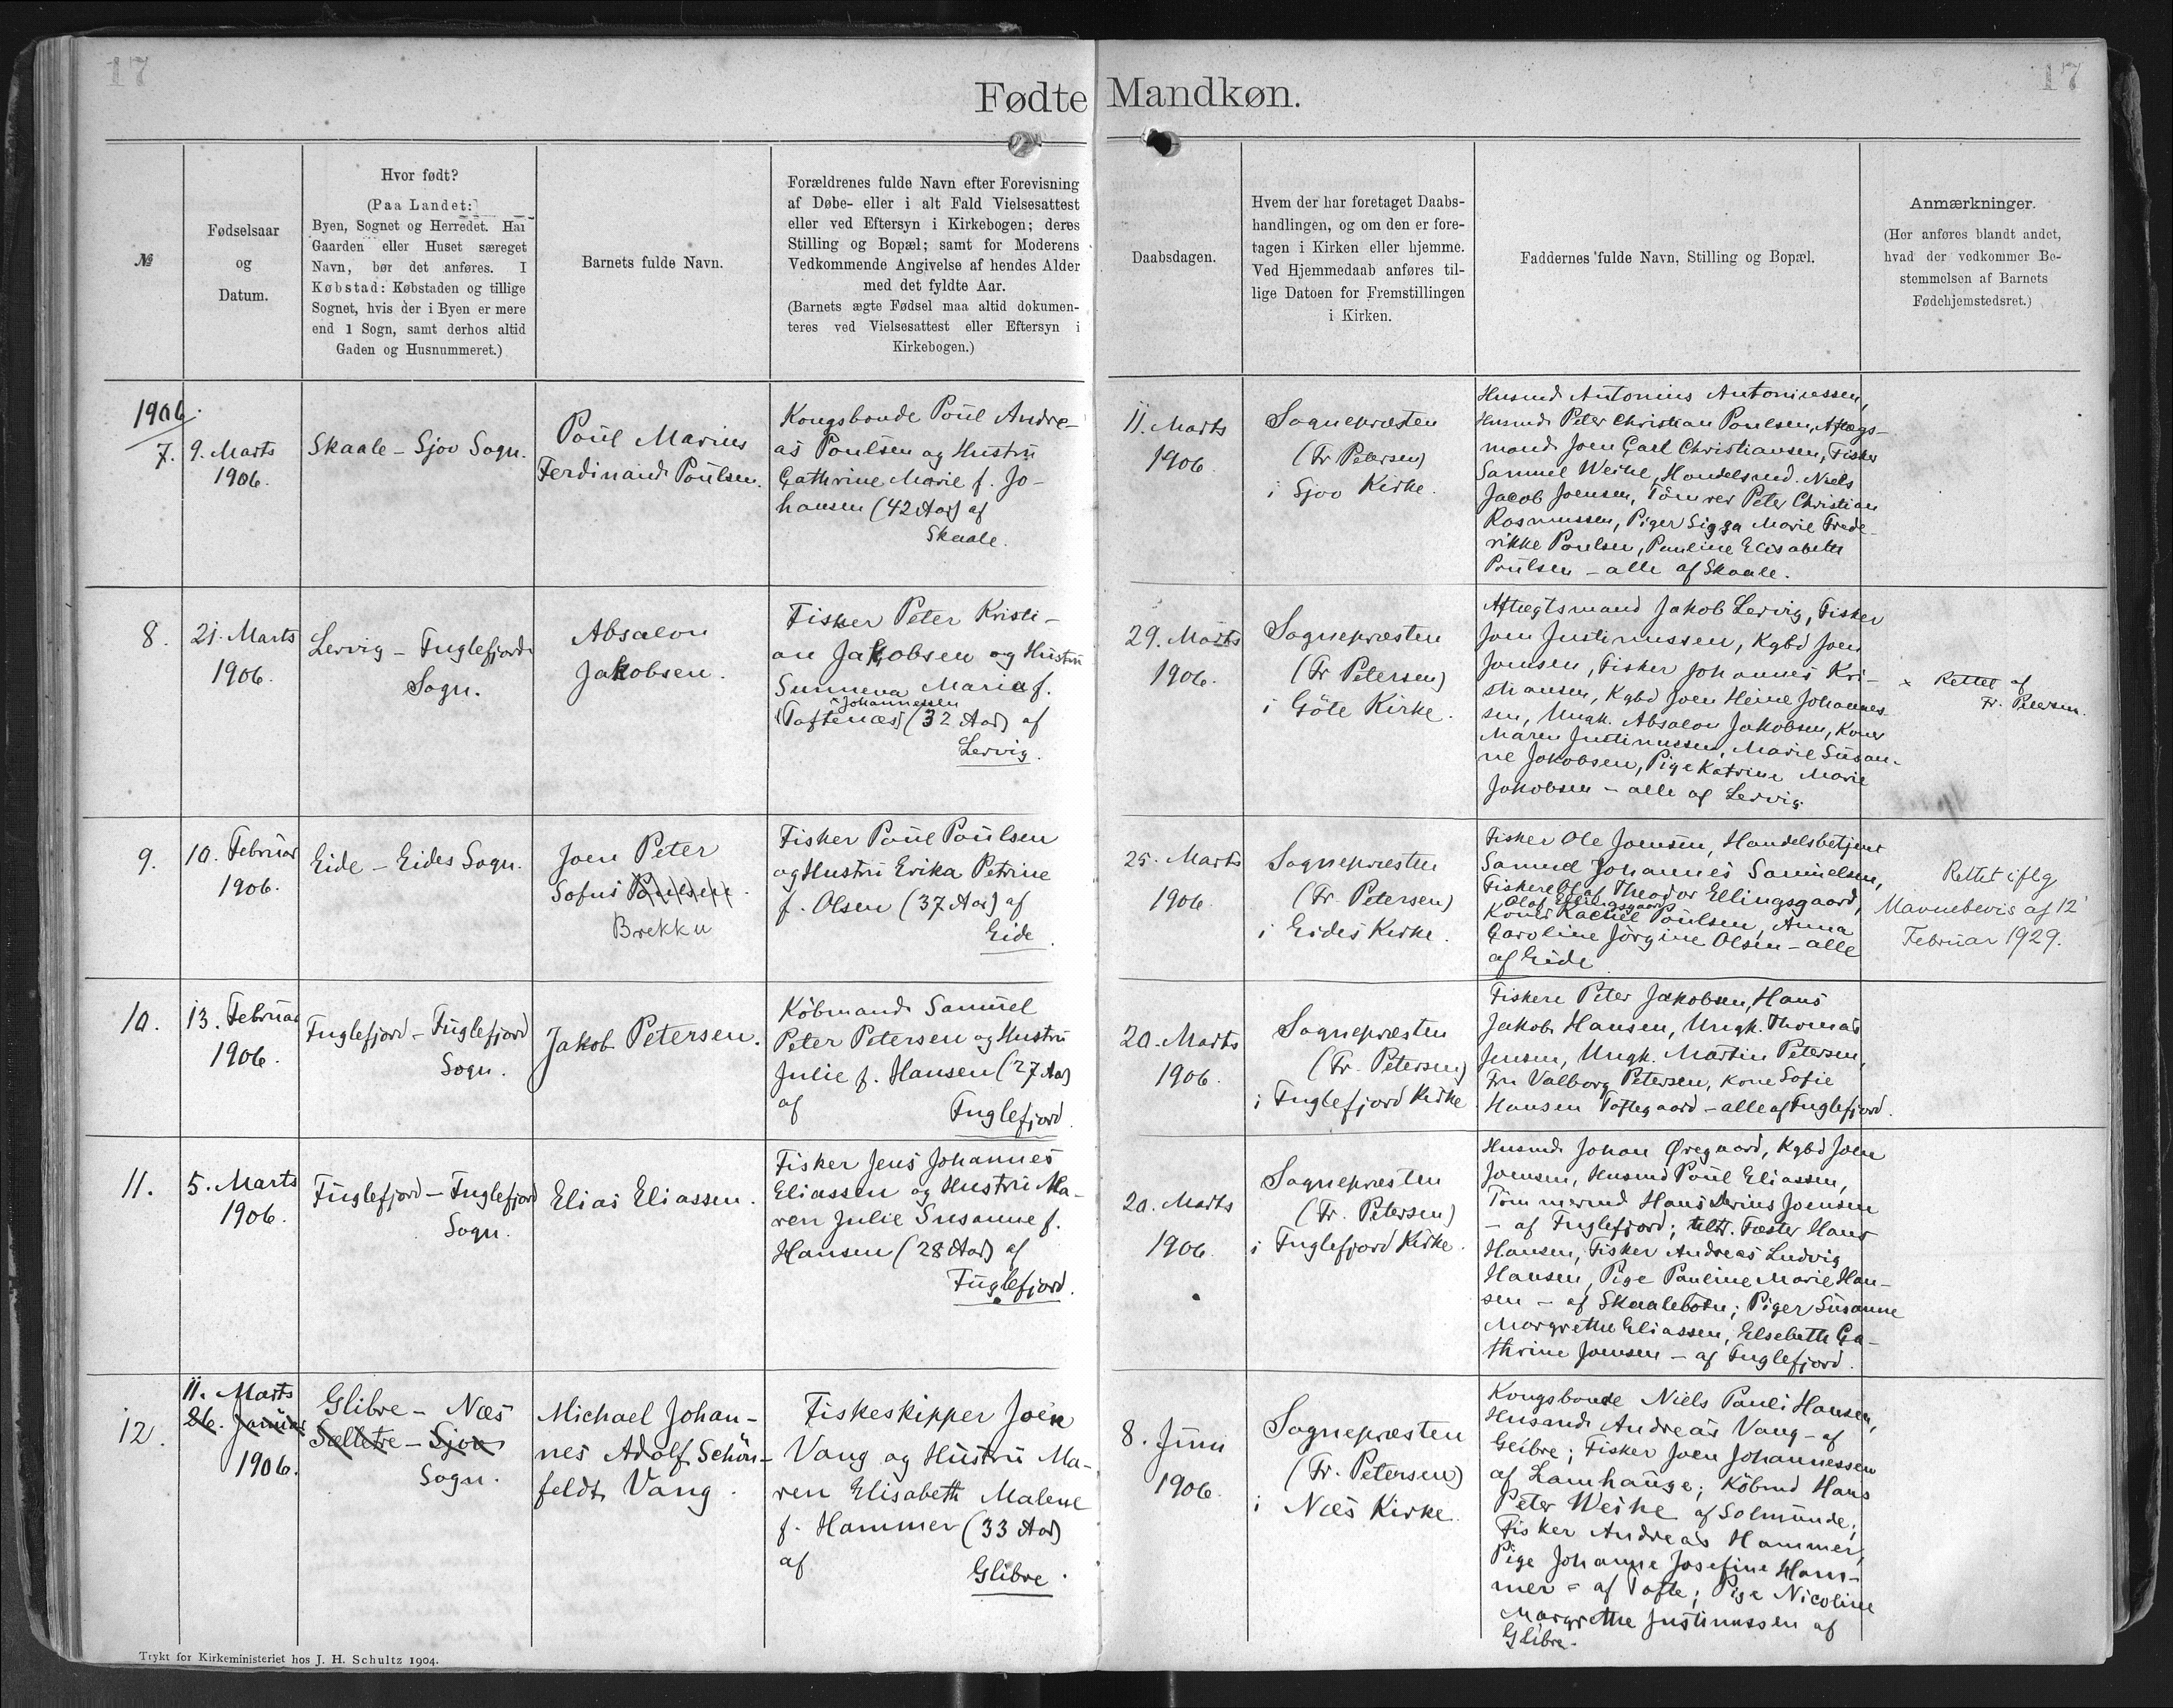 17
17
Fødte Mandkøn.
№
Fødselsaar
og
Datum.
Hvor født?
(Paa Landet:
Byen, Sognet og Herredet. Har
Gaarden eller Huset særeget
Navn, bør det anføres. I
Købstad: Købstaden og tillige
Sognet, hvis der i Byen er mere
end 1 Sogn, samt derhos altid
Gaden og Husnummeret.)
Barnets fulde Navn.
Forældrenes fulde Navn efter Forevisning
af Døbe- eller i alt Fald Vielsesattest
eller ved Eftersyn i Kirkebogen; deres
Stilling og Bopæl; samt for Moderens
Vedkommende Angivelse af hendes Alder
med det fyldte Aar.
(Barnets ægte Fødsel maa altid dokumen-
teres ved Vielsesattest eller Eftersyn i
Kirkebogen.)
Daabsdagen.
Hvem der har foretaget Daabs-
handlingen, og om den er fore-
tagen i Kirken eller hjemme.
Ved Hjemmedaab anføres til-
lige Datoen for Fremstillingen
i Kirken.
Faddernes fulde Navn, Stilling og Bopæl.
Anmærkninger.
(Her anføres blandt andet,
hvad der vedkommer Be-
stemmelsen af Barnets
Fødehjemstedsret.)
1906.
7.
9. Marts
1906.
Skaale – Sjov Sogn.
Poul Marius
Ferdinand Poulsen.
Kongsbonde Poul Andre-
as Poulsen og Hustru
Cathrine Marie f. Jo-
hansen (42 Aar) af
Skaale.
11. Marts
1906.
Sognepræsten
(Fr Petersen)
i Sjov Kirke.
Husmd Antonius Antoniussen,
Husmd Peter Christian Poulsen, Aftægs-
mand Joen Carl Christiansen, Fisker
Samuel Weihe, Handelsmd. Niels
Jacob Joensen, Tömrer Peter Christian
Rasmussen, Piger Sigga Marie Frede-
rikke Poulsen, Pauline Elisabeth
Poulsen – alle af Skaale.
8.
21. Marts
1906.
Lervig – Fuglefjord
Sogn.
Absalon
Jakobsen.
Fisker Peter Kristi-
an Jakobsen og Hustru
Sunneva Maria f.
Johannessen
(Toftenæs) (32 Aar) af
Lervig.
29. Marts
1906.
Sognepræsten
(Fr Petersen)
i Göte Kirke.
Aftægtsmand Jakob Lervig, Fisker
Joen Justinussen, Kgbd Joen
Joensen, Fisker Johannes Kri-
stiansen, Kgbd Joen Heine Johannes-
sen, Ungk. Absalon Jakobsen, Koner
Maren Justinussen, Marie Susan-
ne Jakobsen, Pige Katrine Marie
Jakobsen – alle af Lervig.
x Rettet af
Fr. Petersen.
9.
10. Februar
1906.
Eide – Eides Sogn.
Joen Peter
Sofus Poulsen.
Brekku
Fisker Poul Poulsen
og Hustru Erika Petrine
f. Olsen (37 Aar) af
Eide.
25. Marts
1906.
Sognepræsten
(Fr. Petersen)
i Eides Kirke.
Fisker Ole Joensen, Handelsbetjent
Samuel Johannes Samuelsen,
Fiskere Olaf Theodor Ellingsgaard,
Olaf Ellingsgaard
Koner Rachel Poulsen, Anna
Caroline Jörgine Olsen – alle
af Eide
Rettet iflg
Navnebevis af 12
Februar 1929.
10.
13. Februar
1906.
Fuglefjord – Fuglefjord
Sogn.
Jakob Petersen.
Köbmand Samuel
Peter Petersen og Hustru
Julie f. Hansen (27 Aar)
af
Fuglefjord.
20. Marts
1906.
Sognepræsten
(Fr. Petersen)
i Fuglefjord Kirke
Fiskere Peter Jakobsen, Hans
Jakob Hansen, Ungk. Thomas
Jensen, Ungk. Martin Petersen,
Fru Valborg Petersen, Kone Sofie
Hansen Toftegaard – alle af Fuglefjord.
11.
5. Marts
1906.
Fuglefjord – Fuglefjord
Sogn.
Elias Eliassen.
Fisker Jens Johannes
Eliassen og Hustru Ma-
ren Julie Susanne f.
Hansen (28 Aar) af
Fuglefjord.
20. Marts
1906.
Sognepræsten
(Fr. Petersen)
i Fuglefjord Kirke.
Husmd Johan Øregaard, Kgbd Joen
Joensen, Husmd Poul Eliassen,
Tömmermd Hans Joensen
– af Fuglefjord; Fæster Hans
Hansen, Fisker Andreas Ludvig
Hansen, Pige Pauline Marie Han-
sen – af Skaalebotn; Piger Susanne
Margrethe Eliassen, Elsebeth Ca-
thrine Joensen – af Fuglefjord.
12.
11. Marts
26. Januar
1906.
Glibre – Næs
Selletre – Sjov
Sogn.
Michael Johan-
nes Adolf Schön-
feldt Vang.
Fiskeskipper Joen
Vang og Hustru Ma-
ren Elisabeth Malene
f. Hammer (33 Aar)
af
Glibre.
8. Juni
1906.
Sognepræsten
(Fr. Petersen)
i Næs Kirke.
Kongsbonde Niels Pauli Hansen,
Husmd Andreas Vang – af
Glibre; Fisker Joen Johannessen
af Lamhauge; Köbmd Hans
Peter Weihe af Solmunde;
Fisker Andreas Hammer,
Pige Johanne Josefine Ham-
mer – af Tofte; Pige Nicoline
Margrethe Justinussen af
Glibre.
Trykt for Kirkeministeriet hos J. H. Schultz 1904.